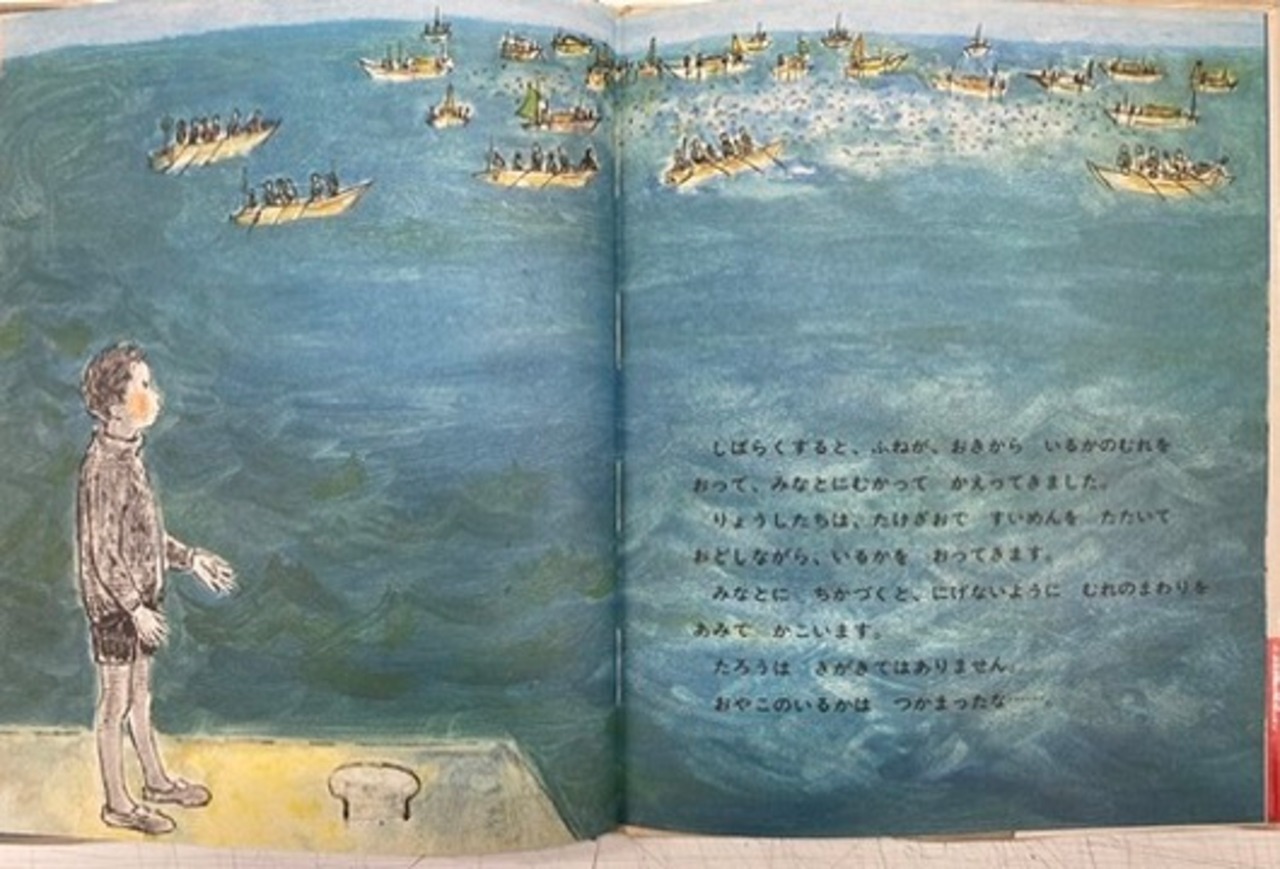 しばらくすると、ふねが、おきから　いるかのむれを
おって、みなとにむかって　かえってきました。
りょうしたちは、たけざおで　すいめんを　たたいて
おどしながら、いるかを　おってきます。
みなとに　ちかづくと、にげないように　むれのまわりを
あみで　かこいます。
たろうは　きがきではありません。
おやこのいるかは　つかまったな……。